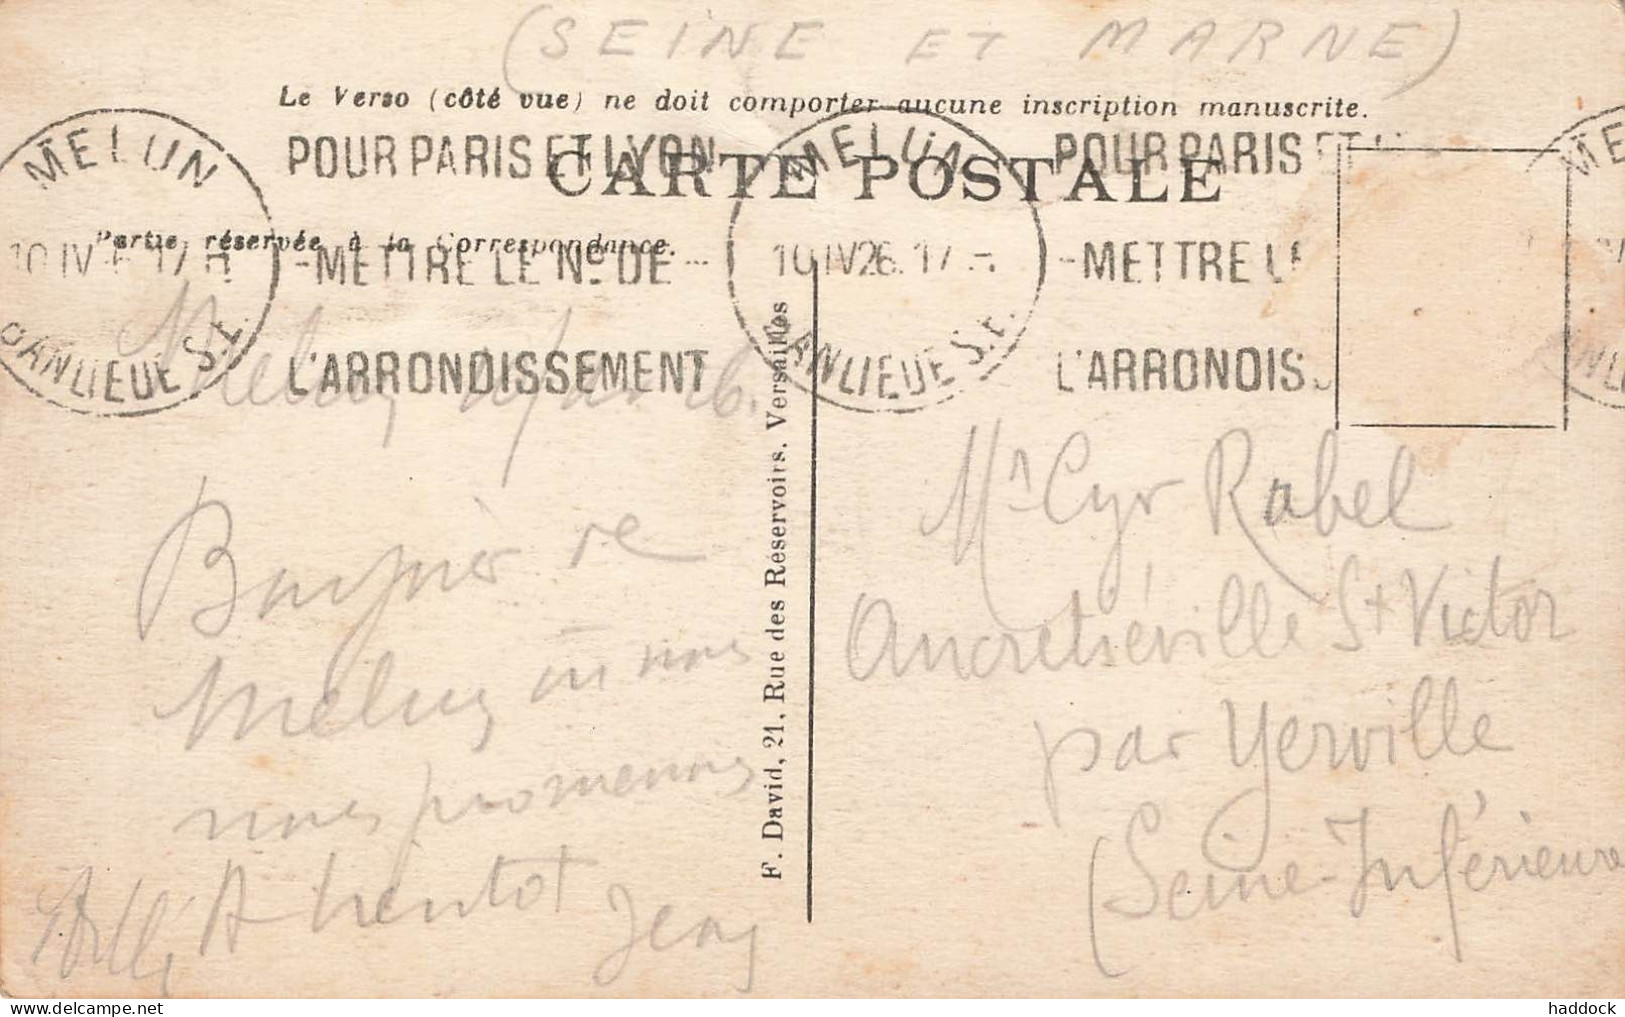 (SEINE ET MARNE)
Le Verso (côté vue) ne doit comporter aucune inscription manuscrite.
CARTE POSTALE
MELUN
10 IV 17
BANLIEUE S.E.
POUR PARIS ET LYON
-METTRE LE No DE-
L'ARRONDISSEMENT
MELUN
10 IV 26. 17
BANLIEUE S.E.
POUR PARIS ET
-METTRE LE
L'ARRONDISS
Partie réservée à la Correspondance.
Melun 26.
Bonjour de
Melun où nous
nous promenons
A bientot
Jean
F. David, 21, Rue des Réservoirs. Versailles
Mr Cyr Rabel
Ancretiéville St Victor
par Yerville
(Seine-Inférieure
haddock